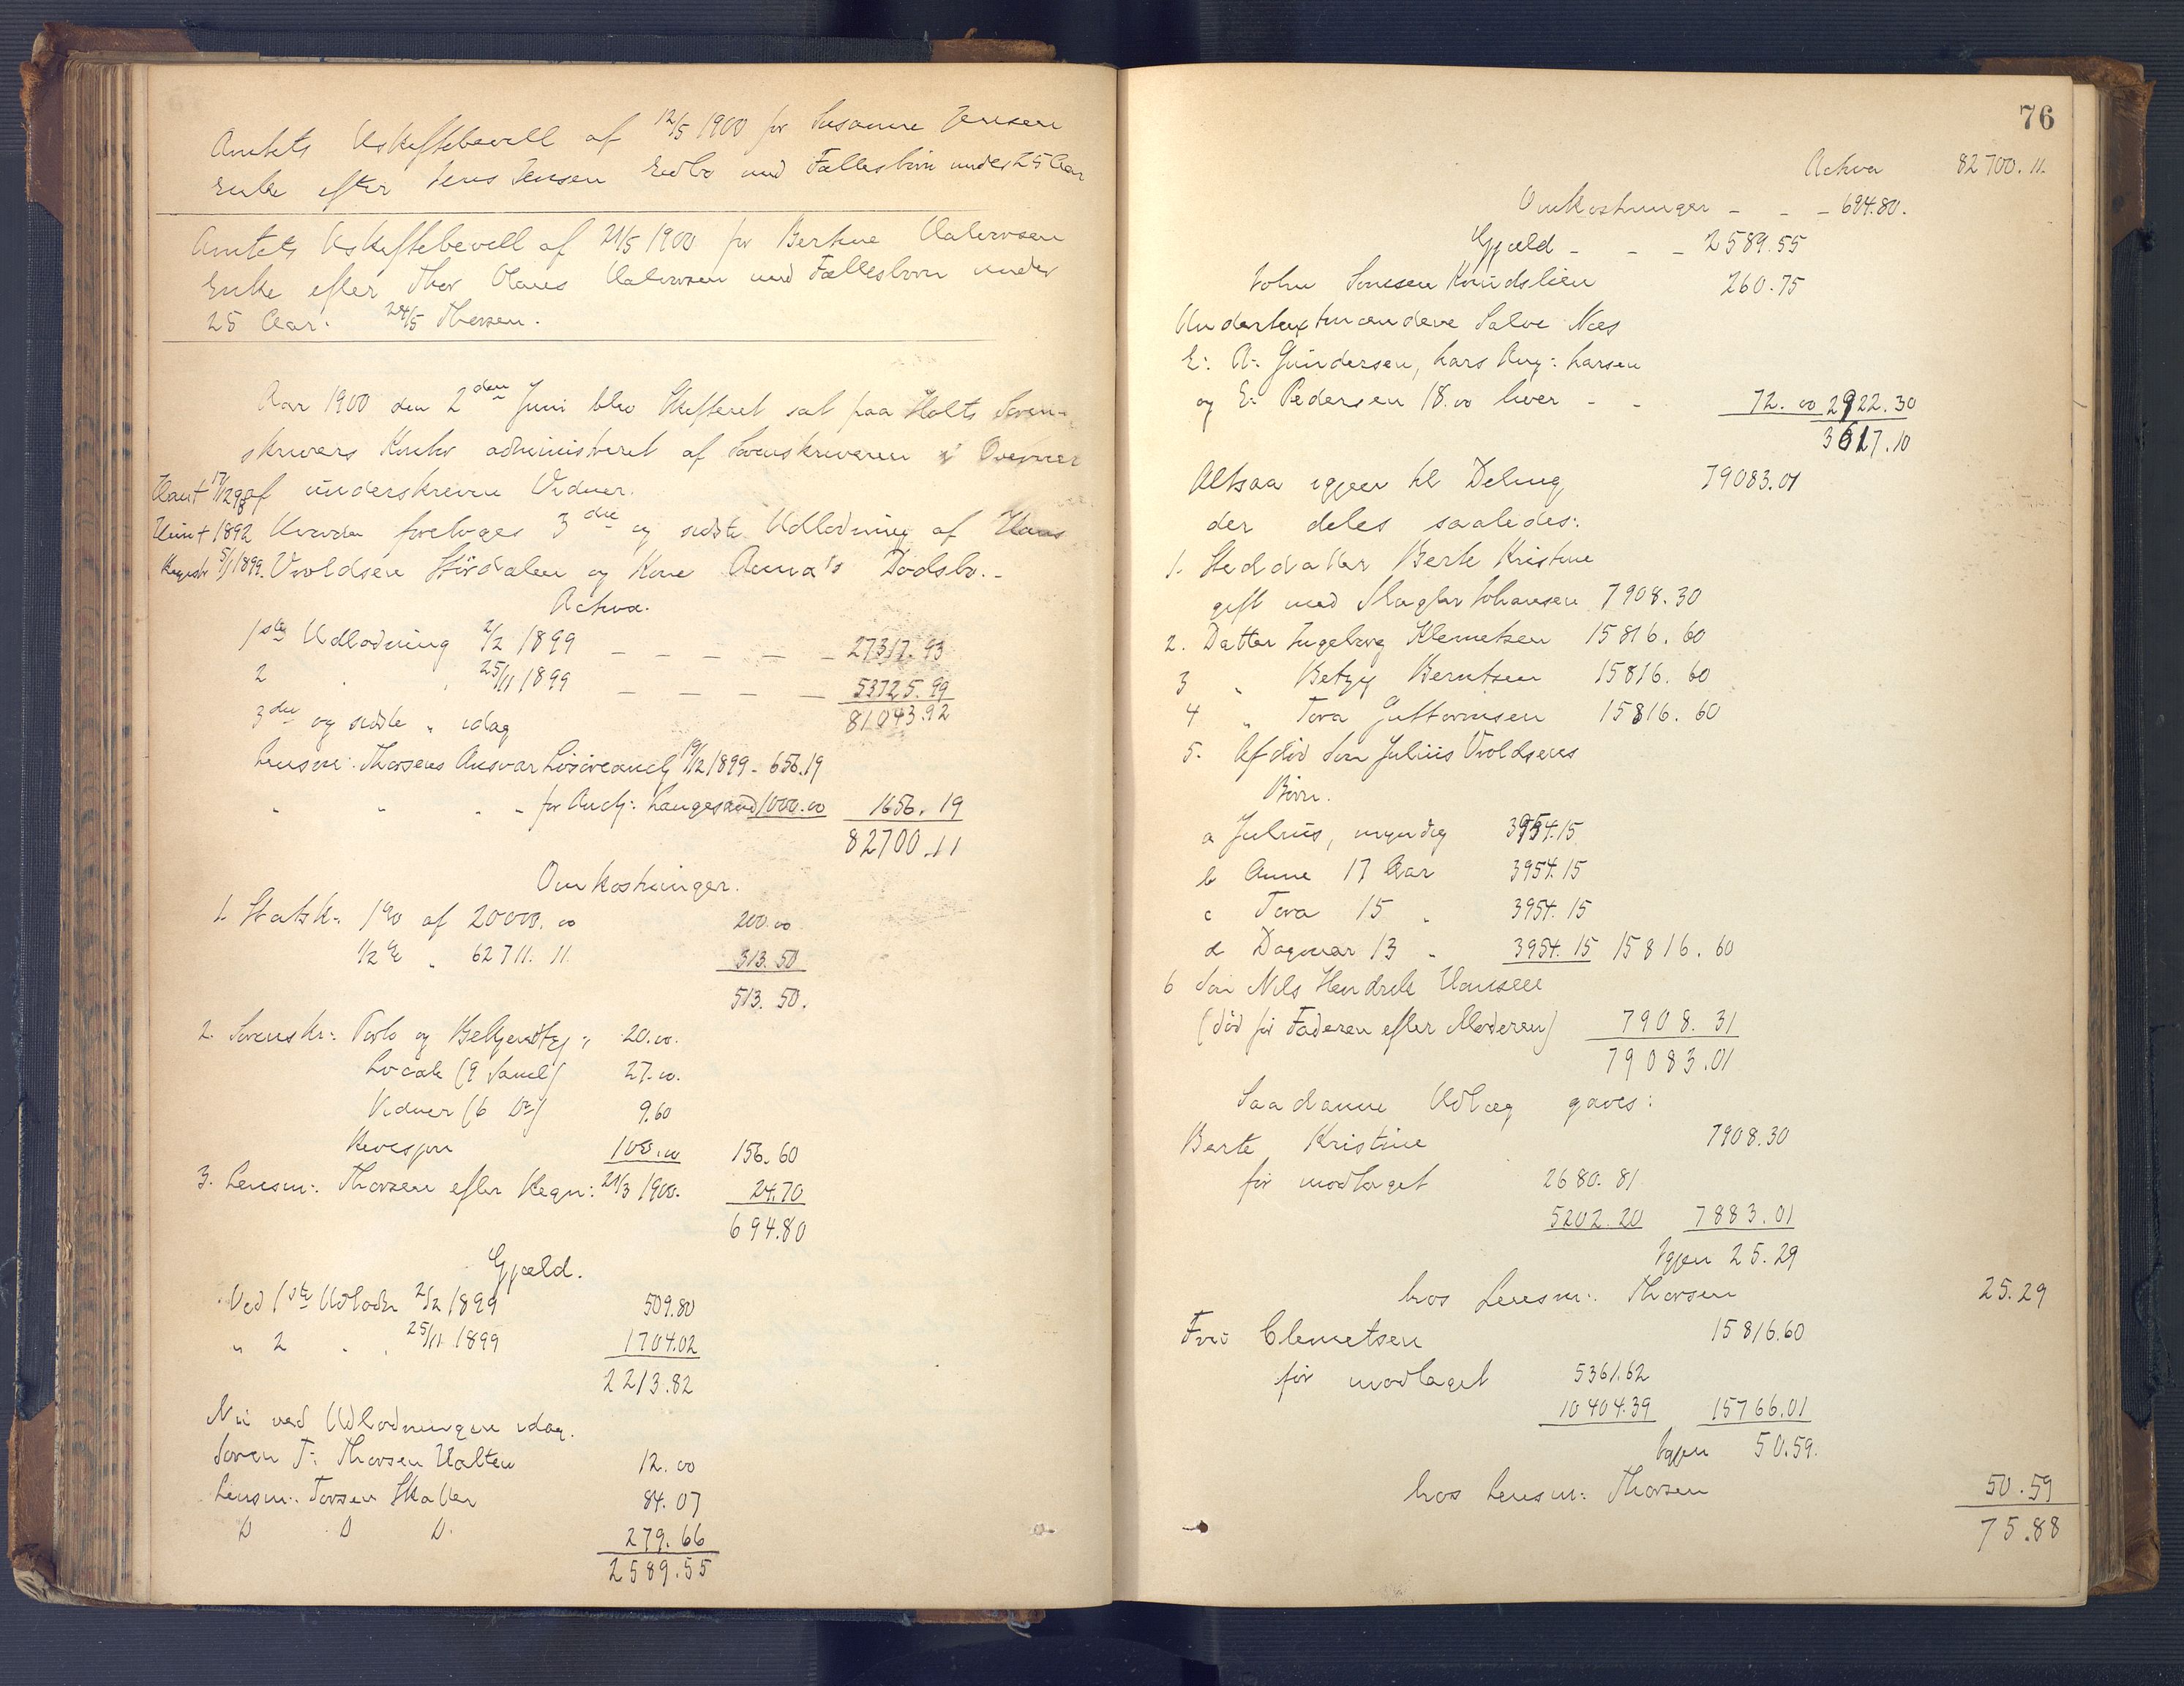 Amtets Uskiftebevill af 12/5 1900 for Susanne Jensen
Enke efter Jens Jensen Eidbo med Fællesbörn under 25 Aar
Amtets Uskiftebevill af 21/5 1900 for Bertine Halvorsen
Enke efter Thor Olaus Halvorsen med Fællesbörn under
25 Aar. 24/5 Thorsen.
Aar 1900 den 2den Juni blev Skifteret sat paa Holts Soren-
skrivers Kontor administreret af Sorenskriveren i Overvær
af underskrevne Vidner.
Hustr 1892 Hvorda foretoges 3die og sidste Udlodning af Hans
Registr 5/1 1899. Vroldsen Stördalen og Kone Anna's Dödsbo. -
Activa.
1ste Udlodning 2/2 1899 - - - - - 27317.93
2 " " 25/11 1899 - - - - 53725.99
81043.92
3die og sidste " idag
Lensm: Thorsens Ansvar Lösöreauctj 19/12 1899 - 656.19
" " " - for Auctj: Langesand 1000.00 1656.19
82700.11
Omkostninger.
1. Statsk: 1% af 20000.00 200.00
1/2 % " 62711.11. 313.50
513.50.
2. Sorenskr: Porto og Bekjendtgj: 20.00.
Locale (9 Saml) 27.00.
Vidner (6 Do) 9.60
Revision 100.00 156.60
3. Lensm: Thorsen efter Regn: 21/3 1900. 24.70
694.80
Gjæld.
Ved 1ste Udlodn 2/2 1899 509.80
" 2 " " 25/11 1899 1704.02
2213.82
Nu ved Udlodningen idag.
Soren T: Thorsen Halten 12.00
Lensm: Torsen Skatter 84.07
D D D. 279.66
2589.55
76
Activa 82700.11.
Omkostninger - - - 694.80.
Gjæld - - - 2589.55
John Sonesen Knudslien 260.75
Undertaxtmændene Salve Næs
E: A: Gundersen, Lars Aug: Larsen
og E: Pedersen 18.00 hver - - 72.00 2922.30
3617.10
Altsaa igjen til Deling, 79083.01
der deles saaledes:
1. Steddatter Berte Kristine
gift med Slagter Johansen 7908.30
2. Datter Ingeborg Klemetsen 15816.60
3 " Betzy Berntsen 15816.60
4 " Tora Guttormsen 15816.60
5. Afdöd Sön Julius Vroldsens
Börn.
a Julius, myndig 3954.15
b Anne 17 Aar 3954.15
c Tora 15 " 3954.15
d Dagmar 13 " 3954.15 15816.60
6 Sön Nils Hendrik Hansen
(död för Faderen efter Moderen) 7908.31
79083.01
Saadanne Udlæg gaves:
Berte Kristine 7908.30
för modtaget 2680.81
5202.20 7883.01
Igjen 25.29
hos Lensm: Thorsen 25.29
Fru Clemetsen 15816.60
för modtaget 5361.62
10404.39 15766.01
Igjen 50.59.
hos Lensm: Thorsen 50.59
75.88